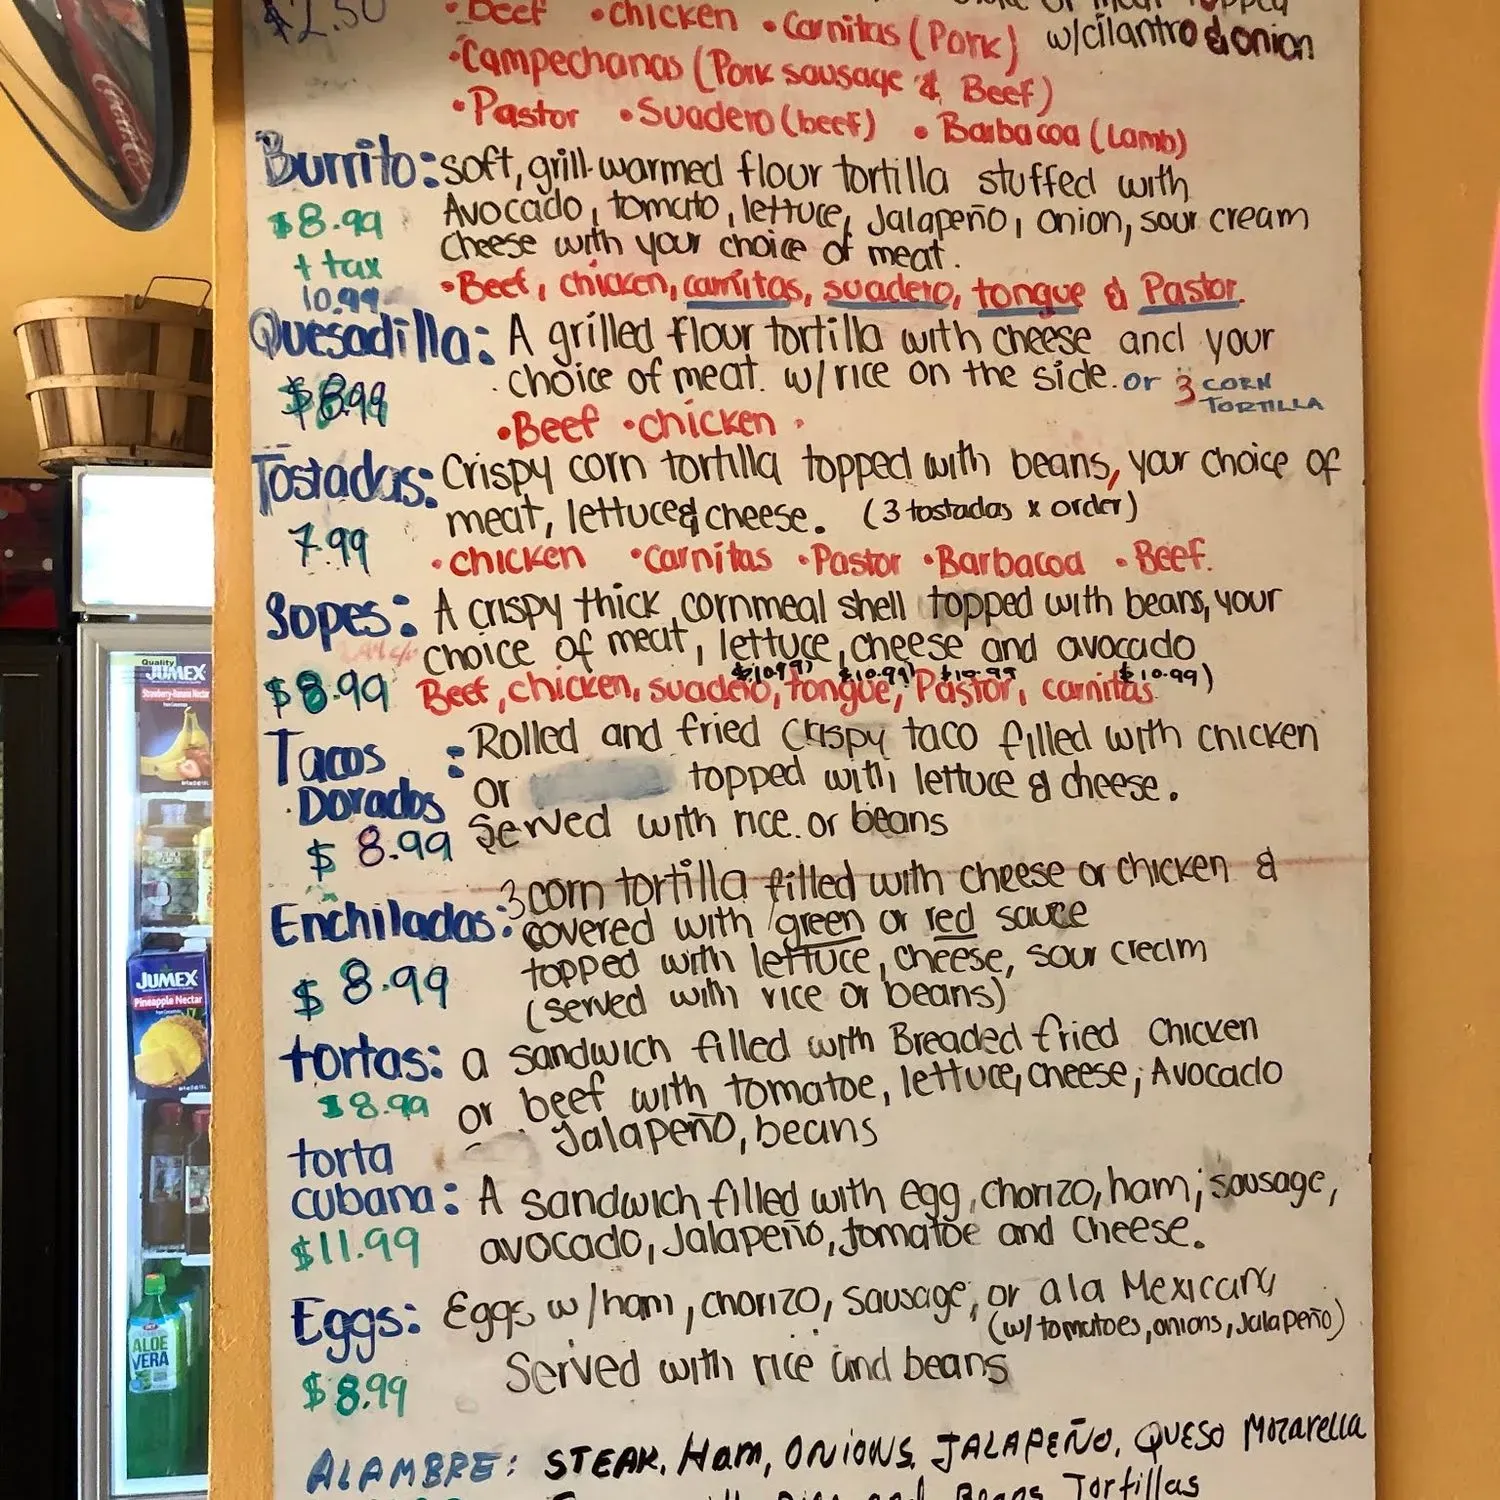 $2.50
• Beef • Chicken • Carnitas (Pork) w/cilantro & onion
• Campechanas (Pork sausage & Beef)
• Pastor • Suadero (beef) • Barbacoa (Lamb)
Burrito: soft, grill-warmed flour tortilla stuffed with
$8.99 Avocado, tomato, lettuce, Jalapeño, onion, sour cream
+ tax cheese with your choice of meat.
10.99 • Beef, chicken, carnitas, suadero, tongue & Pastor.
Quesadilla: A grilled flour tortilla with cheese and your
$8.99 choice of meat. w/rice on the side. or 3 CORN TORTILLA
• Beef • chicken
Tostadas: Crispy corn tortilla topped with beans, your choice of
7.99 meat, lettuce & cheese. (3 tostadas x order)
• chicken • Carnitas • Pastor • Barbacoa • Beef.
Sopes: A crispy thick cornmeal shell topped with beans, your
choice of meat, lettuce, cheese and avocado
$10.99) $10.99) $10.99 $10.99)
$8.99 Beef, chicken, suadero, tongue, Pastor, carnitas
Tacos Dorados: Rolled and fried crispy taco filled with chicken
or topped with lettuce & cheese.
$8.99 Served with rice. or beans
3 corn tortilla filled with cheese or chicken &
Enchiladas: covered with green or red sauce
$8.99 topped with lettuce, cheese, sour cream
(served with rice or beans)
tortas: a sandwich filled with Breaded fried Chicken
$8.99 or beef with tomatoe, lettuce, cheese, Avocado
Jalapeño, beans
torta
cubana: A sandwich filled with egg, chorizo, ham, sausage,
$11.99 avocado, Jalapeño, tomatoe and cheese.
Eggs: Eggs w/ham, chorizo, sausage, or ala Mexicana
(w/tomatoes, onions, Jalapeño)
$8.99 Served with rice and beans
ALAMBRE: STEAK, Ham, ONIONS, JALAPEÑO, QUESO Mozarella
Rice and Beans Tortillas
Coca-Cola
Quality
JUMEX
Strawberry-Banana Nectar
JUMEX
Pineapple Nectar
ALOE
VERA